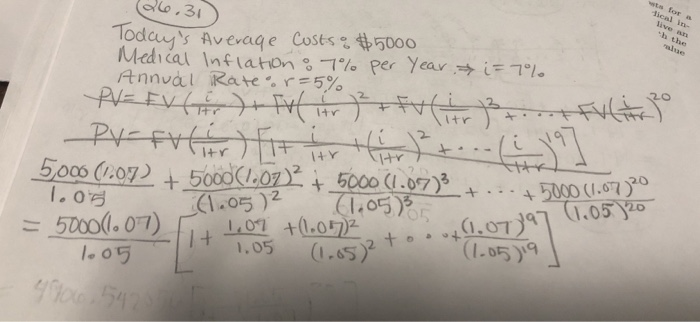 26.31
Today's Average Costs: $5000
Medical Inflation: 7% per Year → i=7%
Annual Rate: r=5%
PV = FV(i/1+r) + FV(i/1+r)^2 + FV(i/1+r)^3 + ... + FV(i/1+r)^20
PV = FV(i/1+r)[1+ i/1+r + (i/1+r)^2 + ... (i/1+r)^19]
5,000(1.07)/1.05 + 5000(1.07)^2/(1.05)^2 + 5000(1.07)^3/(1.05)^3 + ... + 5000(1.07)^20/(1.05)^20
= 5000(1.07)/1.05 [1+ 1.07/1.05 + (1.07)^2/(1.05)^2 + ... + (1.07)^19/(1.05)^19]
for a
live an
h the